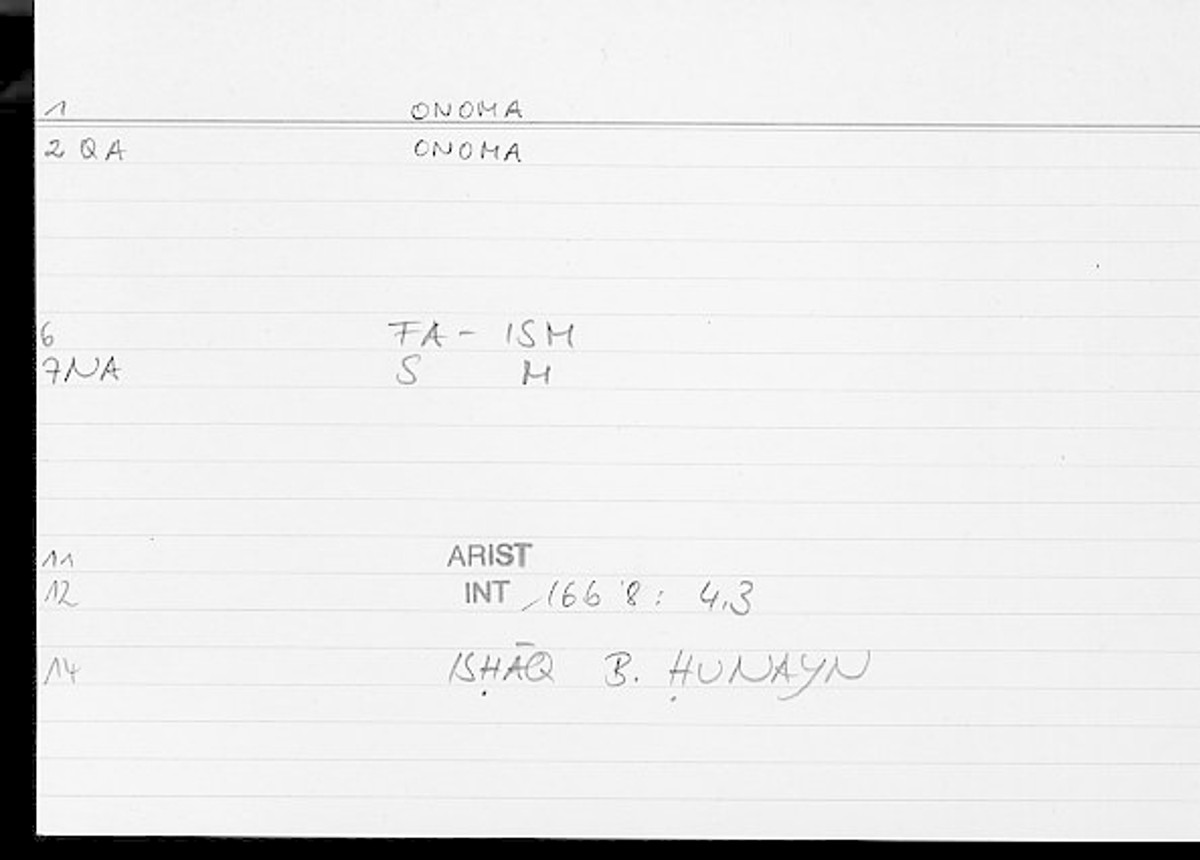 1 ONOMA
2 QA ONOMA
6 FA- ISM
7NA S M
11 ARIST
12 INT /166 '8: 4,3
14 ISḤĀQ B. ḤUNAYN